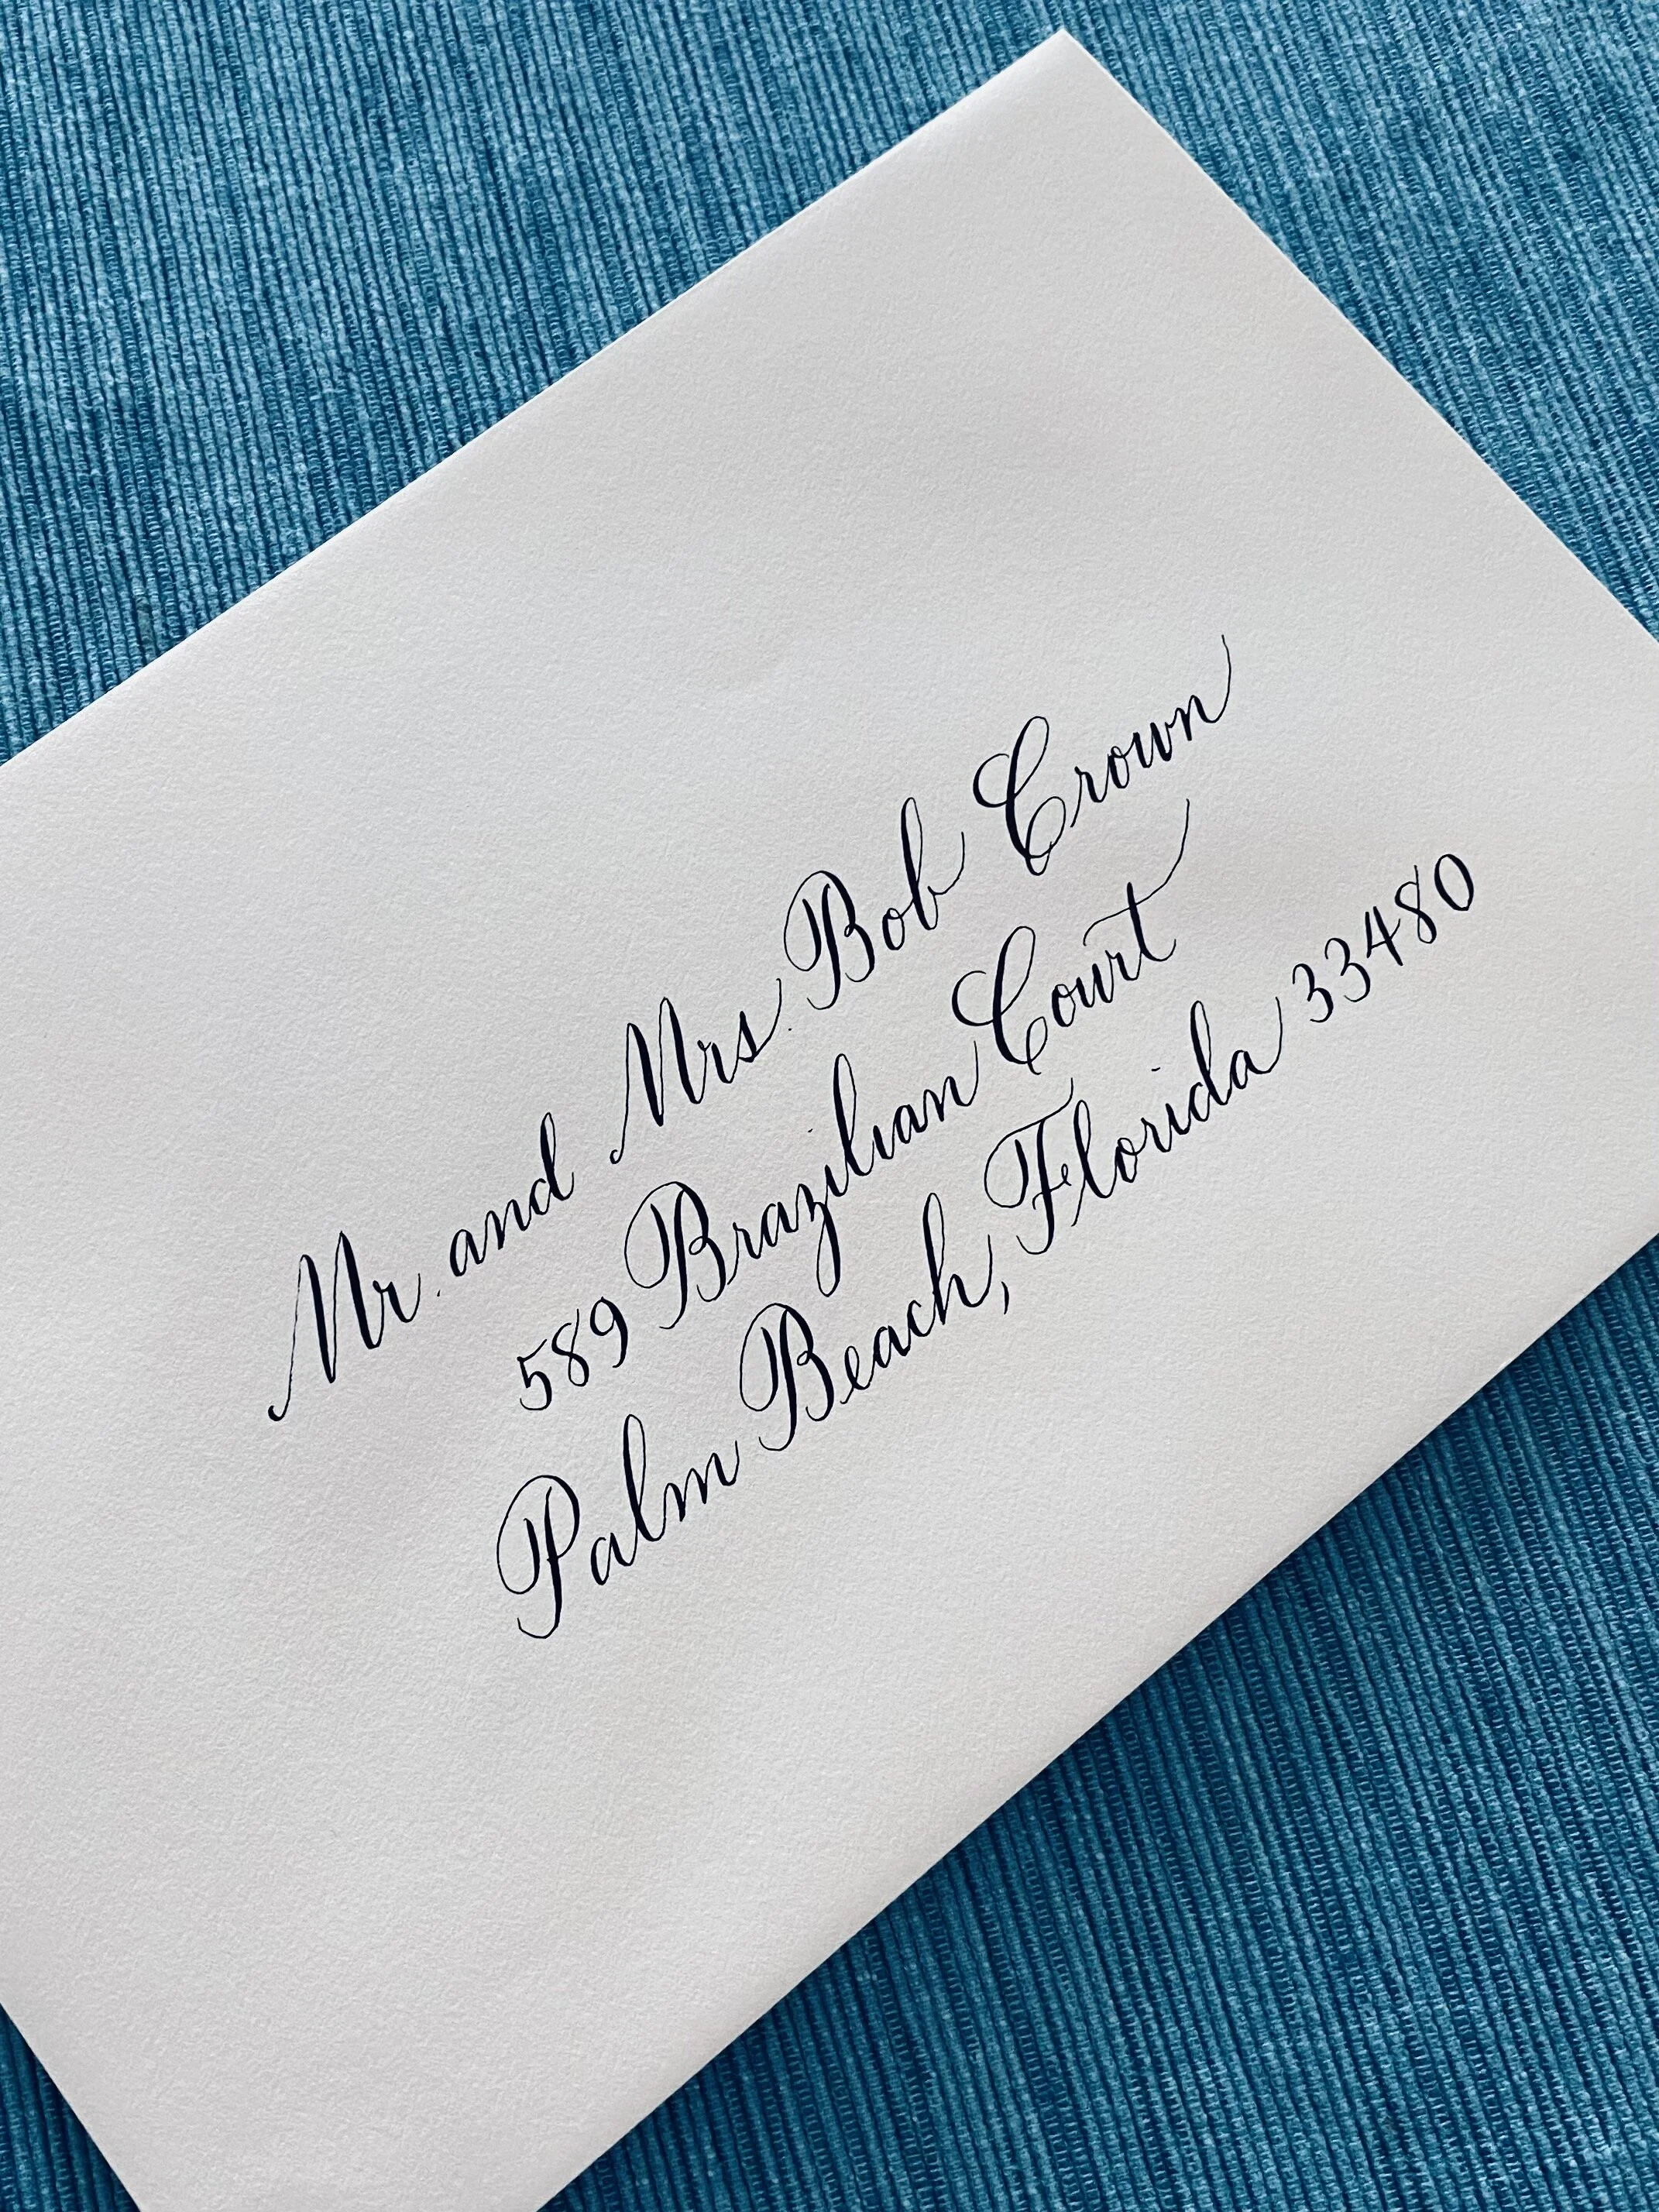 Mr. and Mrs. Bob Crown
589 Brazilian Court
Palm Beach, Florida 33480